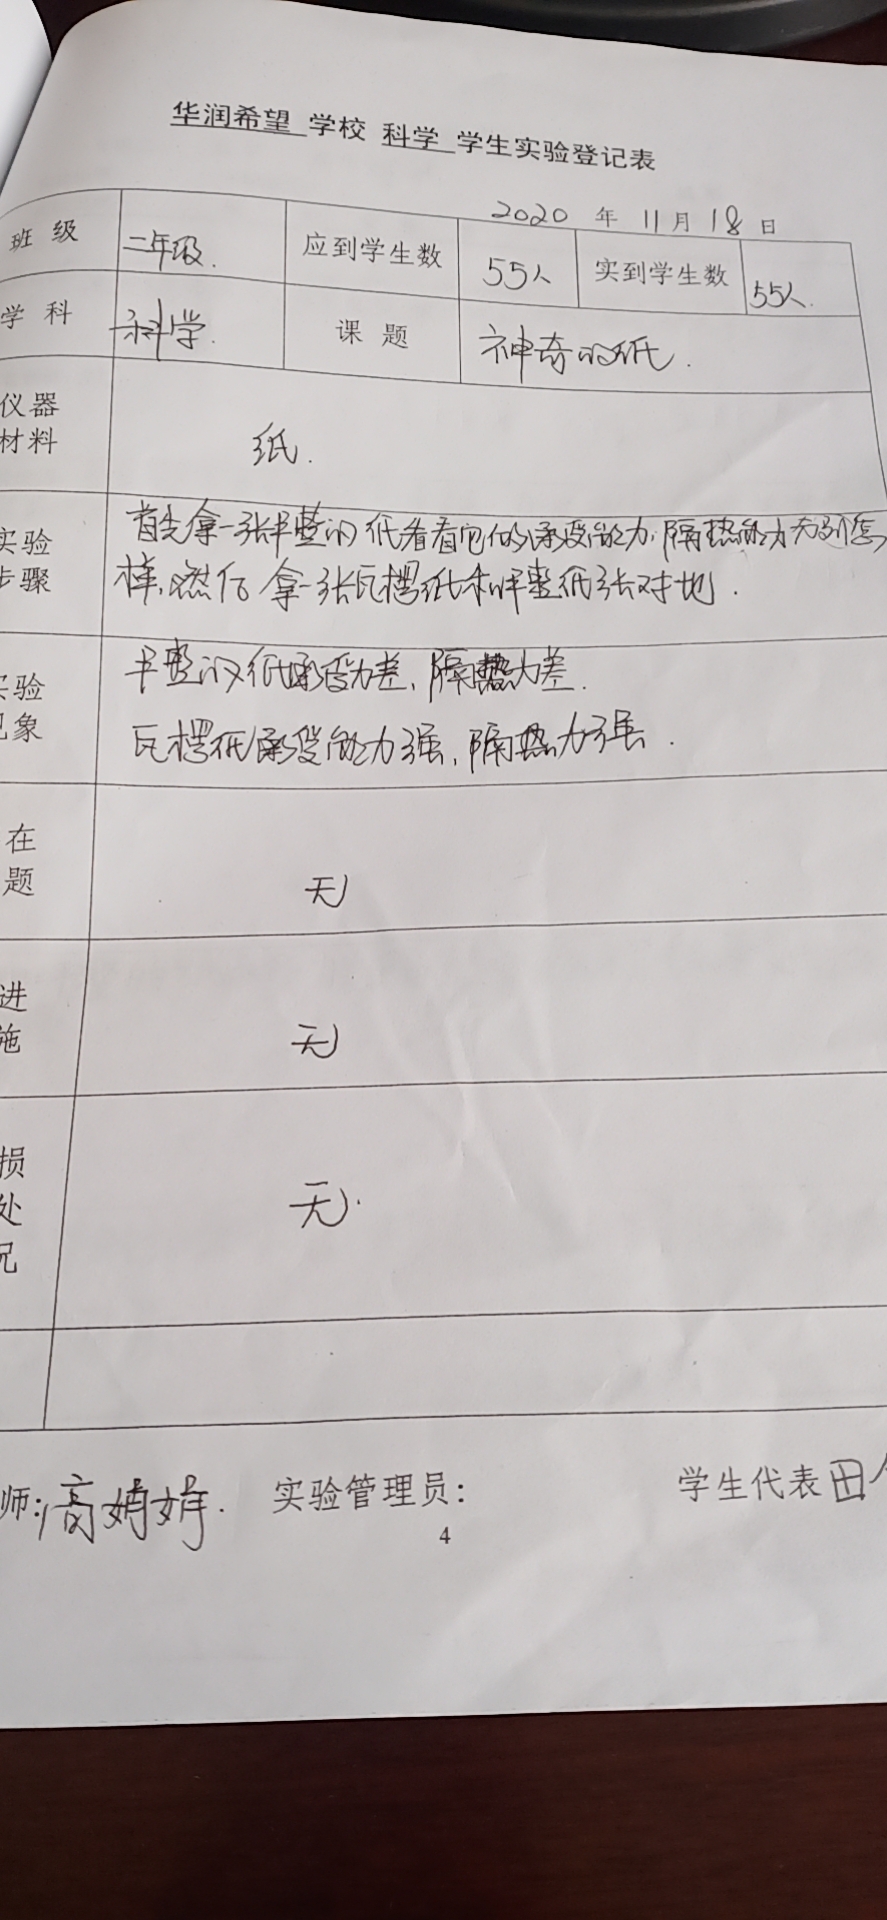 华润希望 学校 科学 学生实验登记表
2020 年 11月 18 日
班 级 二年级. 应到学生数 55人 实到学生数 55人.
学 科 科学. 课 题 神奇的纸.
仪器
材料
纸.
首先拿一张平整的纸看看它的承受能力.隔热能力 怎
实验
步骤
样,然后拿一张瓦楞纸和平整纸张对地.
平整的纸承受力差、隔热力差.
实验
现象
瓦楞纸承受能力强,隔热力强.
在
题
无
进
施
无
损
处
况
无.
师:高娟娟. 实验管理员: 学生代表田
4